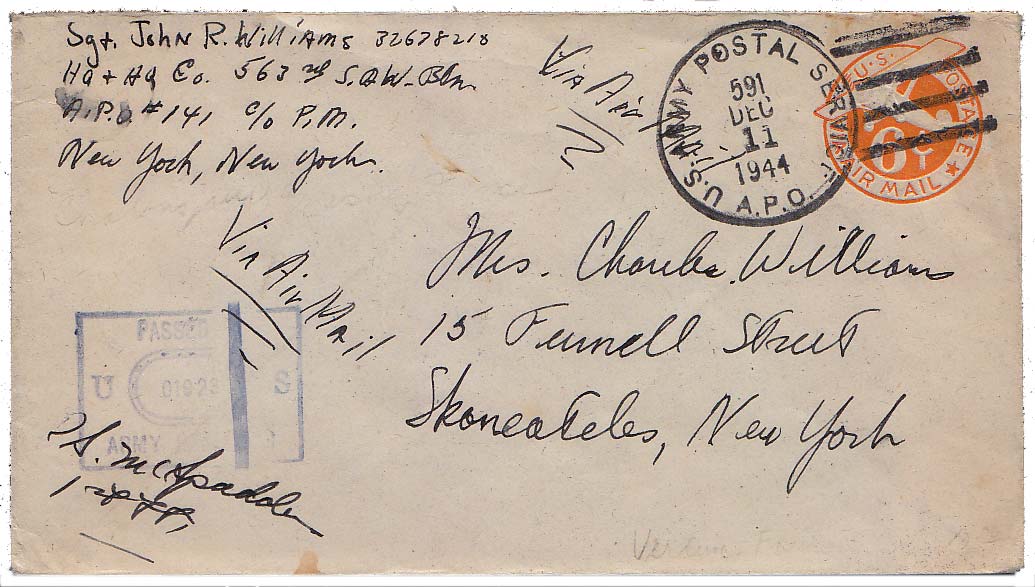 Sgt. John R. Williams 32678218
Hq + Hq Co. 563rd S.A.W. Btn
A.P.O. #141 c/o P.M.
New York, New York.
Via Air
U.S. ARMY POSTAL SERVICE
591
DEC
11
1944
A.P.O.
U.S. POSTAGE
6¢
AIR MAIL
Via Air Mail
Mrs. Charles Williams
15 Fennell Street
Skaneateles, New York
PASSED
U S
ARMY